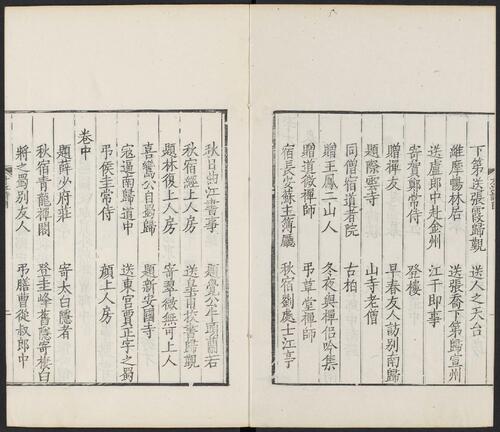 下第送張霞歸覲　送人之天台
維摩暢林居　送張喬下第歸宣州
送盧郎中赴金州　江干即事
寄賀鄭常侍　登樓
贈禪友　早春友人訪別南歸
題際雲寺　山寺老僧
同僧宿道者院　古柏
贈王鳳二山人　冬夜與禪侶吟集
贈道微禪師　弔草堂禪師
宿長安蘇主簿廳　秋宿劉處士江亭
秋日曲江書事　題覺公牛頭蘭若
秋宿經上人房　送皇甫校書歸覲
題林復上人房　寄翠微無可上人
喜鸞公自蜀歸　題新安國寺
寇逼南歸道中　送東宮賈正字之蜀
弔侯圭常侍　顏上人房
卷中
題薛少府莊　寄太白隱者
秋宿青龍禪閣　登圭峰舊隱寄栖白
將之蜀別友人　弔膳曹從叔郎中